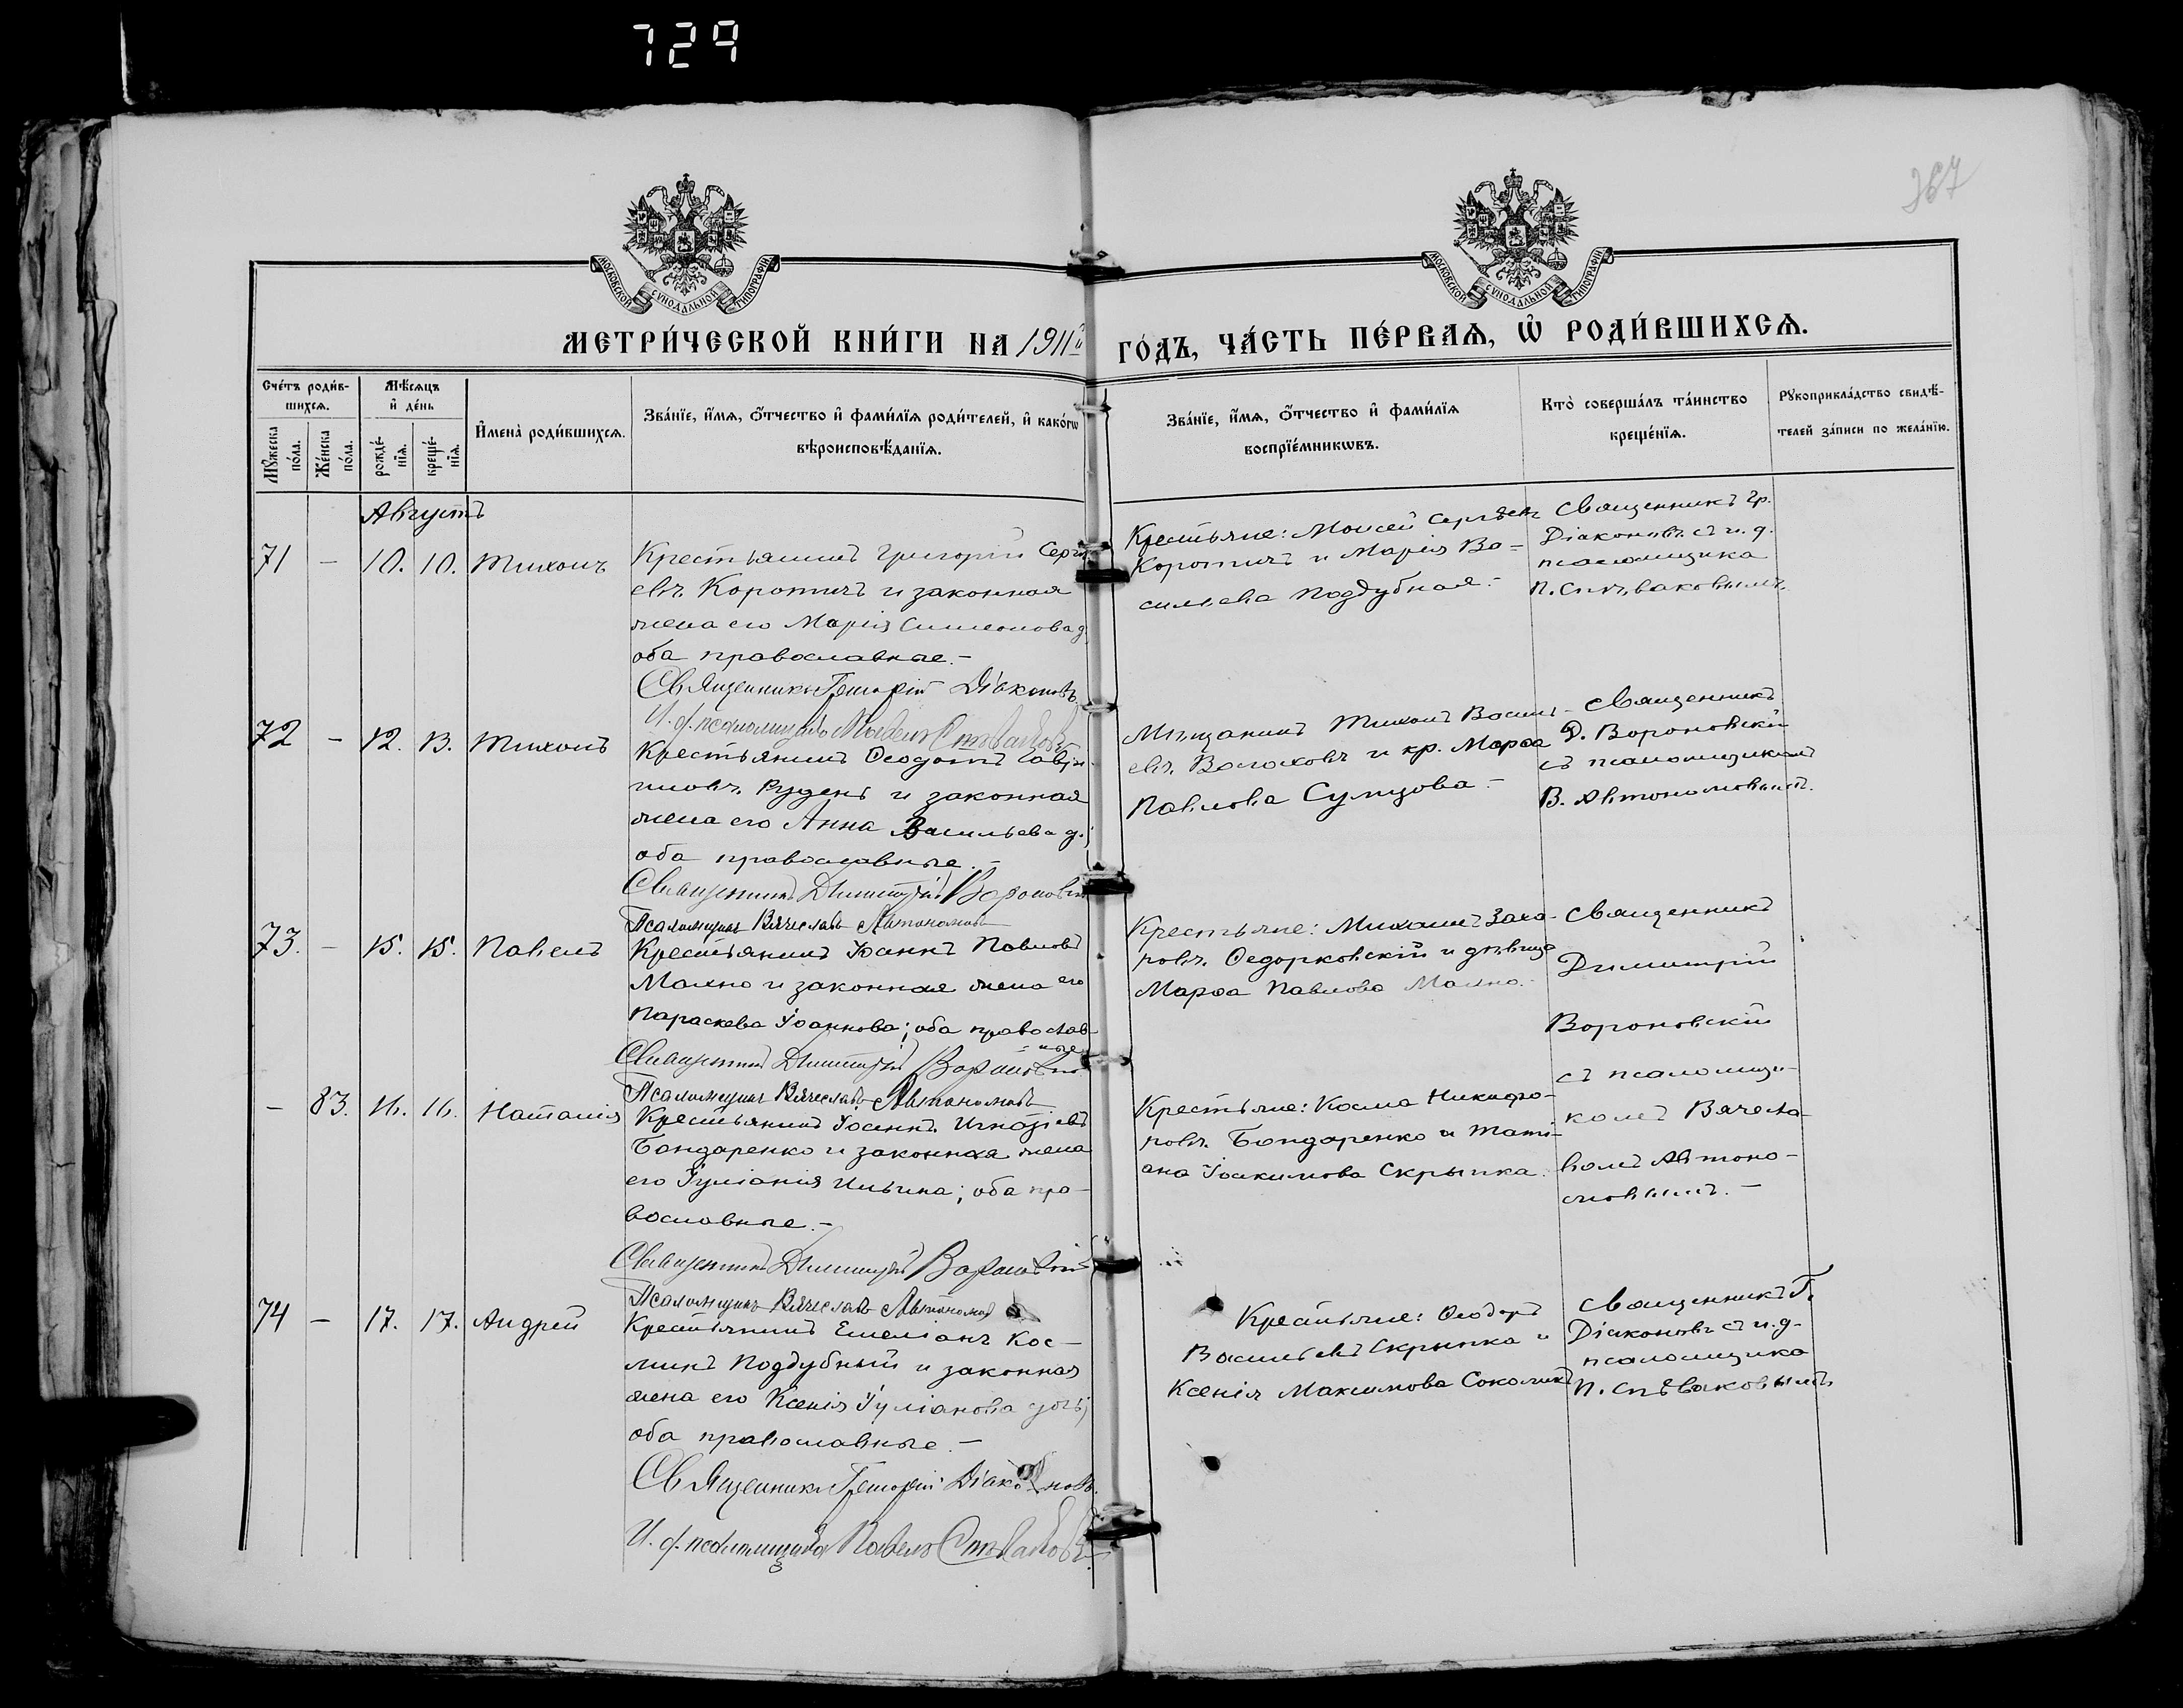 729
367
МОСКОВСКОЙ СУНОДАЛЬНОЙ ТИПОГРАФІИ
МОСКОВСКОЙ СУНОДАЛЬНОЙ ТИПОГРАФІИ
МЕТРИ́ЧЕСКОЙ КНИ́ГИ НА 1911й ГО́ДЪ, ЧА́СТЬ ПЕ́РВАѦ, Ѽ РОДИ́ВШИХСѦ.
Сче́тъ роди́в-
шихсѧ.
Мꙋ́жеска
по́ла.
Же́нска
по́ла.
Мѣ́сѧцъ
и҆ де́нь
рожде́-
нїѧ.
креще́-
нїѧ.
И҆мена̀ роди́вшихсѧ.
Зва́нїе, и҆́мѧ, ѻ҆́тчество и҆ фами́лїѧ роди́телей, и҆ како́гѡ
вѣроисповѣ́данїѧ.
Зва́нїе, и҆́мѧ, ѻ҆́тчество и҆ фами́лїѧ
воспрїе́мникѡвъ.
Кто̀ соверша́лъ та́инство
креще́нїѧ.
Рꙋкоприкла́дство свидѣ́-
телей за́писи по жела́нїю.
Августъ
71 – 10. 10. Тихонъ
Крестьянинъ Григорій Сергѣ
евъ Коротичъ и законная
жена его Марія Симеонова д.
оба православные.–
Священникъ Григорій Діаконовъ
И. д. псаломщика Павелъ Спѣваковъ
Крестьяне: Моисей Сергѣевъ
Коротичъ и Марія Ва=
сильева Поддубная.–
Священникъ Гр.
Діаконовъ съ и. д.
псаломщика
П. Спѣваковымъ.
72 – 12. 13. Тихонъ
Крестьянинъ Ѳеодотъ Гаврі-
иловъ Рудень и законная
жена его Анна Васильева д.;
оба православные.–
Священникъ Димитрій Вороновскій
Псаломщикъ Вячеславъ Автономовъ
Мѣщанинъ Тихонъ Василь-
евъ Волоховъ и кр. Марѳа
Павлова Сумцова.–
Священникъ
Д. Вороновскій
съ псаломщикомъ
В. Автономовымъ.
73. – 15. 15. Павелъ
Крестьянинъ Іоаннъ Павловъ
Махно и законная жена его
Параскева Іоаннова; оба православ-
=ные
Священникъ Димитрій Вороновскій
Псаломщикъ Вячеславъ Автономовъ
Крестьяне: Михаилъ Заха-
ровъ Ѳедорковскій и дѣвица
Марѳа Павлова Махно.–
Священникъ
Димитрій
Вороновскій
съ псаломщи-
комъ Вячесла-
вомъ Автоно-
мовымъ.–
– 83. 16. 16. Наталія
Крестьянинъ Іоаннъ Игнатіевъ
Бондаренко и законная жена
его Іуліанія Ильина; оба пра-
вославные.–
Священникъ Димитрій Вороновскій
Псаломщикъ Вячеславъ Автономовъ
Крестьяне: Косма Никифо-
ровъ Бондаренко и Тати-
ана Іоакимова Скрыпка.
74 – 17. 17. Андрей
Крестьянинъ Емеліанъ Кос-
минъ Поддубный и законная
жена его Ксенія Іуліанова дочь;
оба православные.–
Священникъ Григорій Діаконовъ.
И. д. псаломщика Павелъ Спѣваковъ
Крестьяне: Ѳеодоръ
Васильевъ Скрыпка и
Ксенія Максимова Соколикъ
Священникъ Г.
Діаконовъ съ и. д.
псаломщика
П. Спѣваковымъ